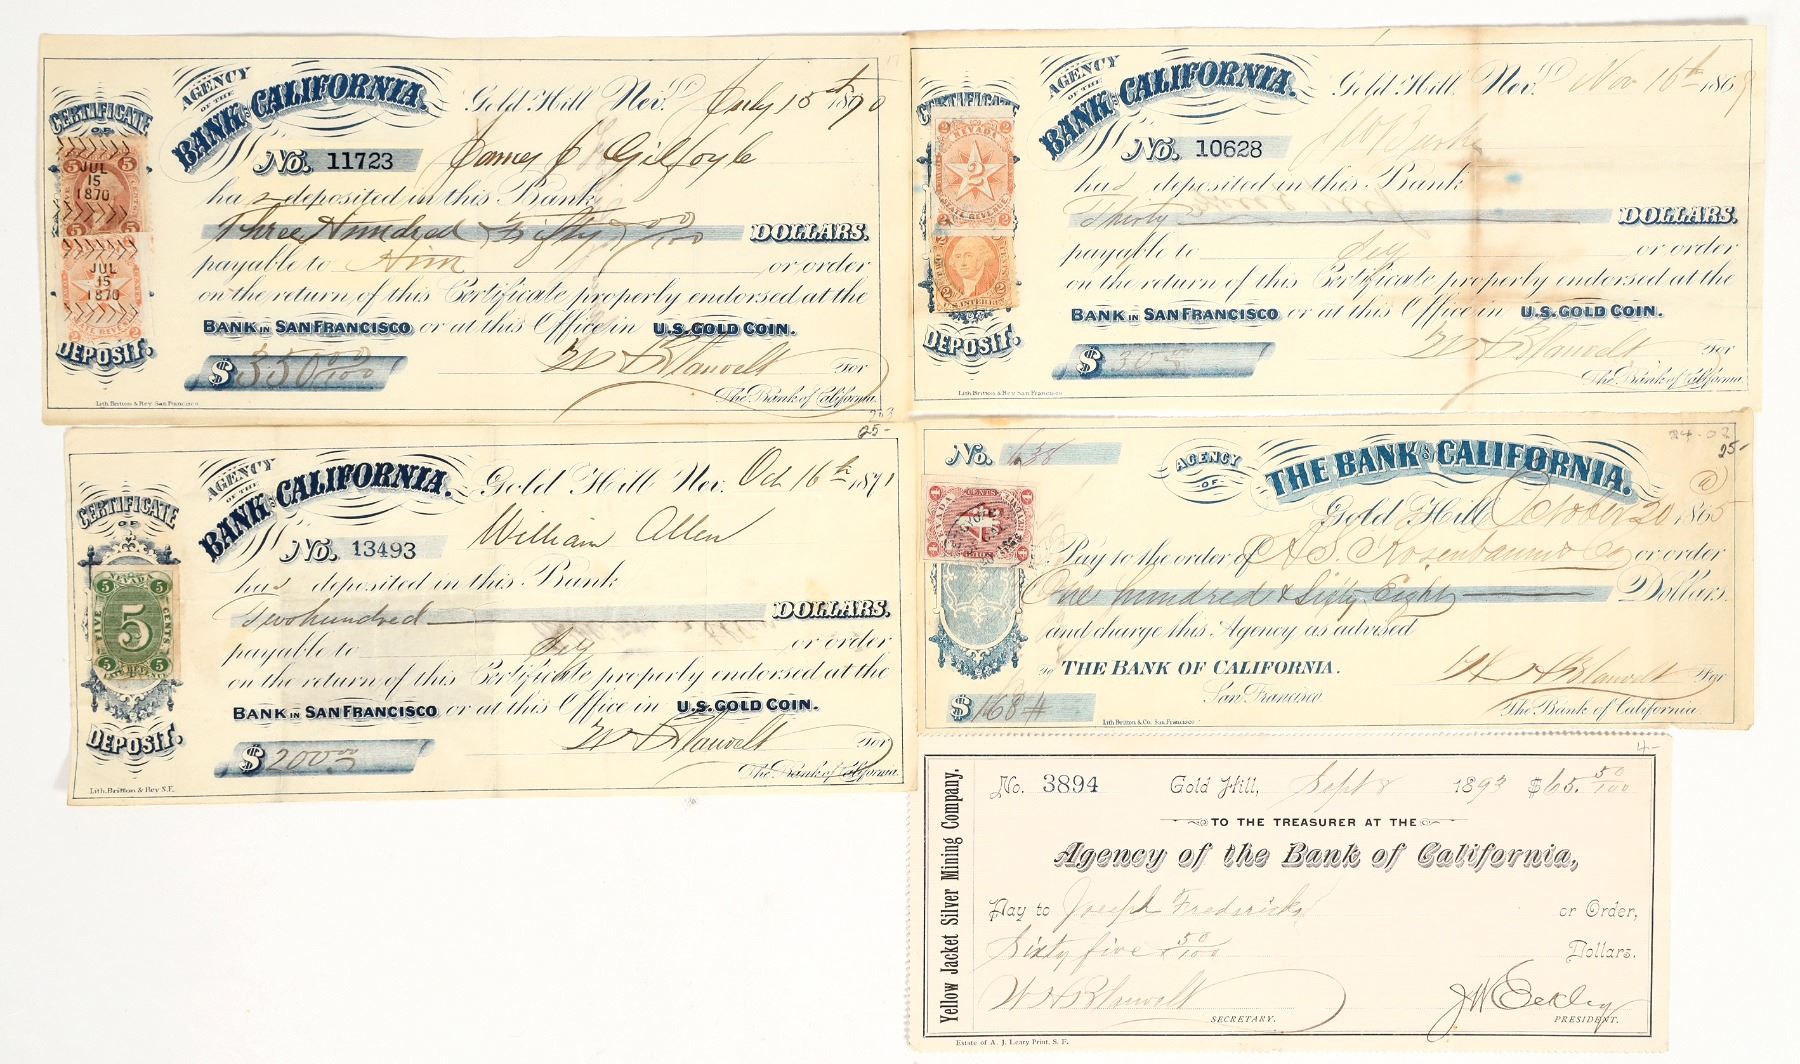 CERTIFICATE
OF
DEPOSIT.
5 5
JUL
15
1870
5 5
JUL
15
1870
STATE REVENUE
AGENCY
OF THE
BANK OF CALIFORNIA.
Gold Hill Nev. July 15th 1870
No. 11723 James J Gilfoyle
has deposited in this Bank
Three Hundred & Fifty 00/100 DOLLARS.
payable to Him or order
on the return of this Certificate properly endorsed at the
BANK IN SAN FRANCISCO or at this Office in U.S. GOLD COIN.
$ 350 00/100 W H Blauvelt For
The Bank of California.
Lith. Britton & Rey San Francisco
263
CERTIFICATE
2 NEVADA 2
2
2 STATE REVENUE 2
TWO CENTS
2 U.S. INTER. REV. 2
DEPOSIT.
AGENCY
OF THE
BANK OF CALIFORNIA.
Gold Hill, Nev. Nov 16th 1869
No. 10628 Burke
has deposited in this Bank
Thirty DOLLARS.
payable to Self or order
on the return of this Certificate properly endorsed at the
BANK IN SAN FRANCISCO or at this Office in U.S. GOLD COIN.
$ 30 00 W H Blauvelt For
The Bank of California.
Lith. Britton & Rey San Francisco
25-
CERTIFICATE
OF
5 NEVADA 5
FIVE 5 CENTS
5 5
STATE REVENUE
DEPOSIT.
AGENCY
OF THE
BANK OF CALIFORNIA.
Gold Hill Nev. Oct 16th 1871
No. 13493 William Allen
has deposited in this Bank
Two hundred DOLLARS.
payable to Self or order
on the return of this Certificate properly endorsed at the
BANK IN SAN FRANCISCO or at this Office in U.S. GOLD COIN.
$ 200 00 W H Blauvelt For
The Bank of California.
Lith. Britton & Rey S.F.
24-02
25-
No. 638
AGENCY
OF
THE BANK OF CALIFORNIA.
Gold Hill October 20 1865
Pay to the order of A S. Rosenbaum & Co or order
One hundred & Sixty Eight Dollars.
and charge this Agency as advised
To THE BANK OF CALIFORNIA.
San Francisco.
$ 168 # W H Blauvelt For
The Bank of California.
Lith Britton & Co. San Francisco
4-
Yellow Jacket Silver Mining Company.
No. 3894 Gold Hill, Sept 8 1893 $ 65. 50/100
TO THE TREASURER AT THE
Agency of the Bank of California,
Pay to Joseph Fredericks or Order,
Sixty five 50/100 Dollars.
W H Blauvelt
SECRETARY.
PRESIDENT.
Estate of A. J. Leary Print. S. F.